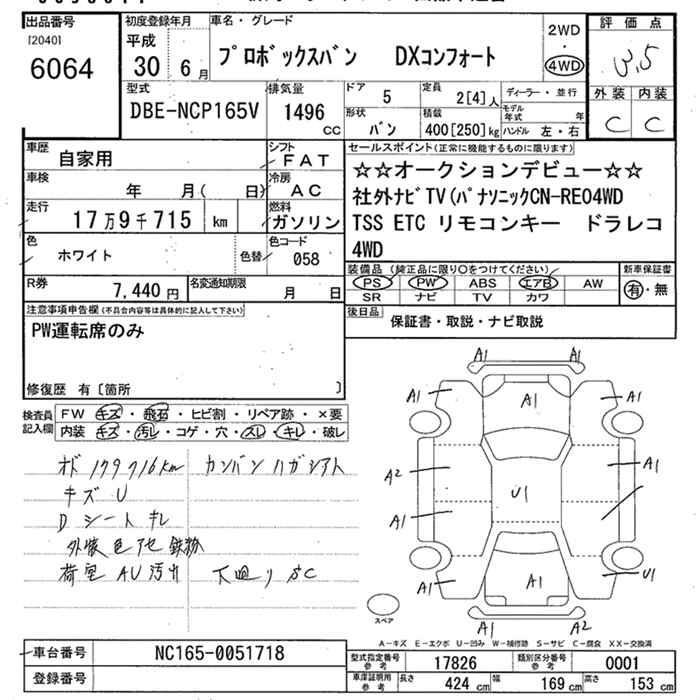 出品番号
[2040]
6064
初度登録年月
平成
30年 6月
車名・グレード
プロボックスバン DXコンフォート
2WD
・
4WD
評価点
3.5
外装 内装
C C
型式
DBE-NCP165V
排気量
1496
CC
ドア 5
形状 バン
定員 2[4]人
積載 400[250]kg
ディーラー・並行
モデル年式 年
ハンドル 左・右
車歴 自家用
シフト FAT
車検 年 月( 日)
冷房 AC
走行 17万9千715 km
燃料 ガソリン
色 ホワイト
色替
色コード 058
R券 7,440円
名変通知期限 月 日
セールスポイント(正常に機能するものに限ります)
☆☆オークションデビュー☆☆
社外ナビTV(パナソニックCN-RE04WD
TSS ETC リモコンキー ドラレコ
4WD
装備品(純正品に限り○をつけてください)
PS PW ABS エアB AW
SR ナビ TV カワ
新車保証書
有・無
後日品 保証書・取説・ナビ取説
注意事項申告欄(不具合内容等は具体的に記入して下さい)
PW運転席のみ
修復歴 有[箇所 ]
検査員記入欄
FW キズ・飛石・ヒビ割・リペア跡・×要
内装 キズ・汚レ・コゲ・穴・スレ・キレ・破レ
オド 179716km カンバンハガシアト
キズU
Dシートキレ
外装色アセ 鉄粉
荷室AU汚レ 下廻りSC
A1 A1
A1 A1 A1
A2 A1
U1
A1
A1 A1 U1
A1 A2
スペア
A-キズ E-エクボ U-凹み W-補修跡 S-サビ C-腐食 XX-交換済
車台番号 NC165-0051718
登録番号
型式指定番号 参考 17826
類別区分番号 参考 0001
車庫証明用 参考 長さ 424 cm 幅 169 cm 高さ 153 cm